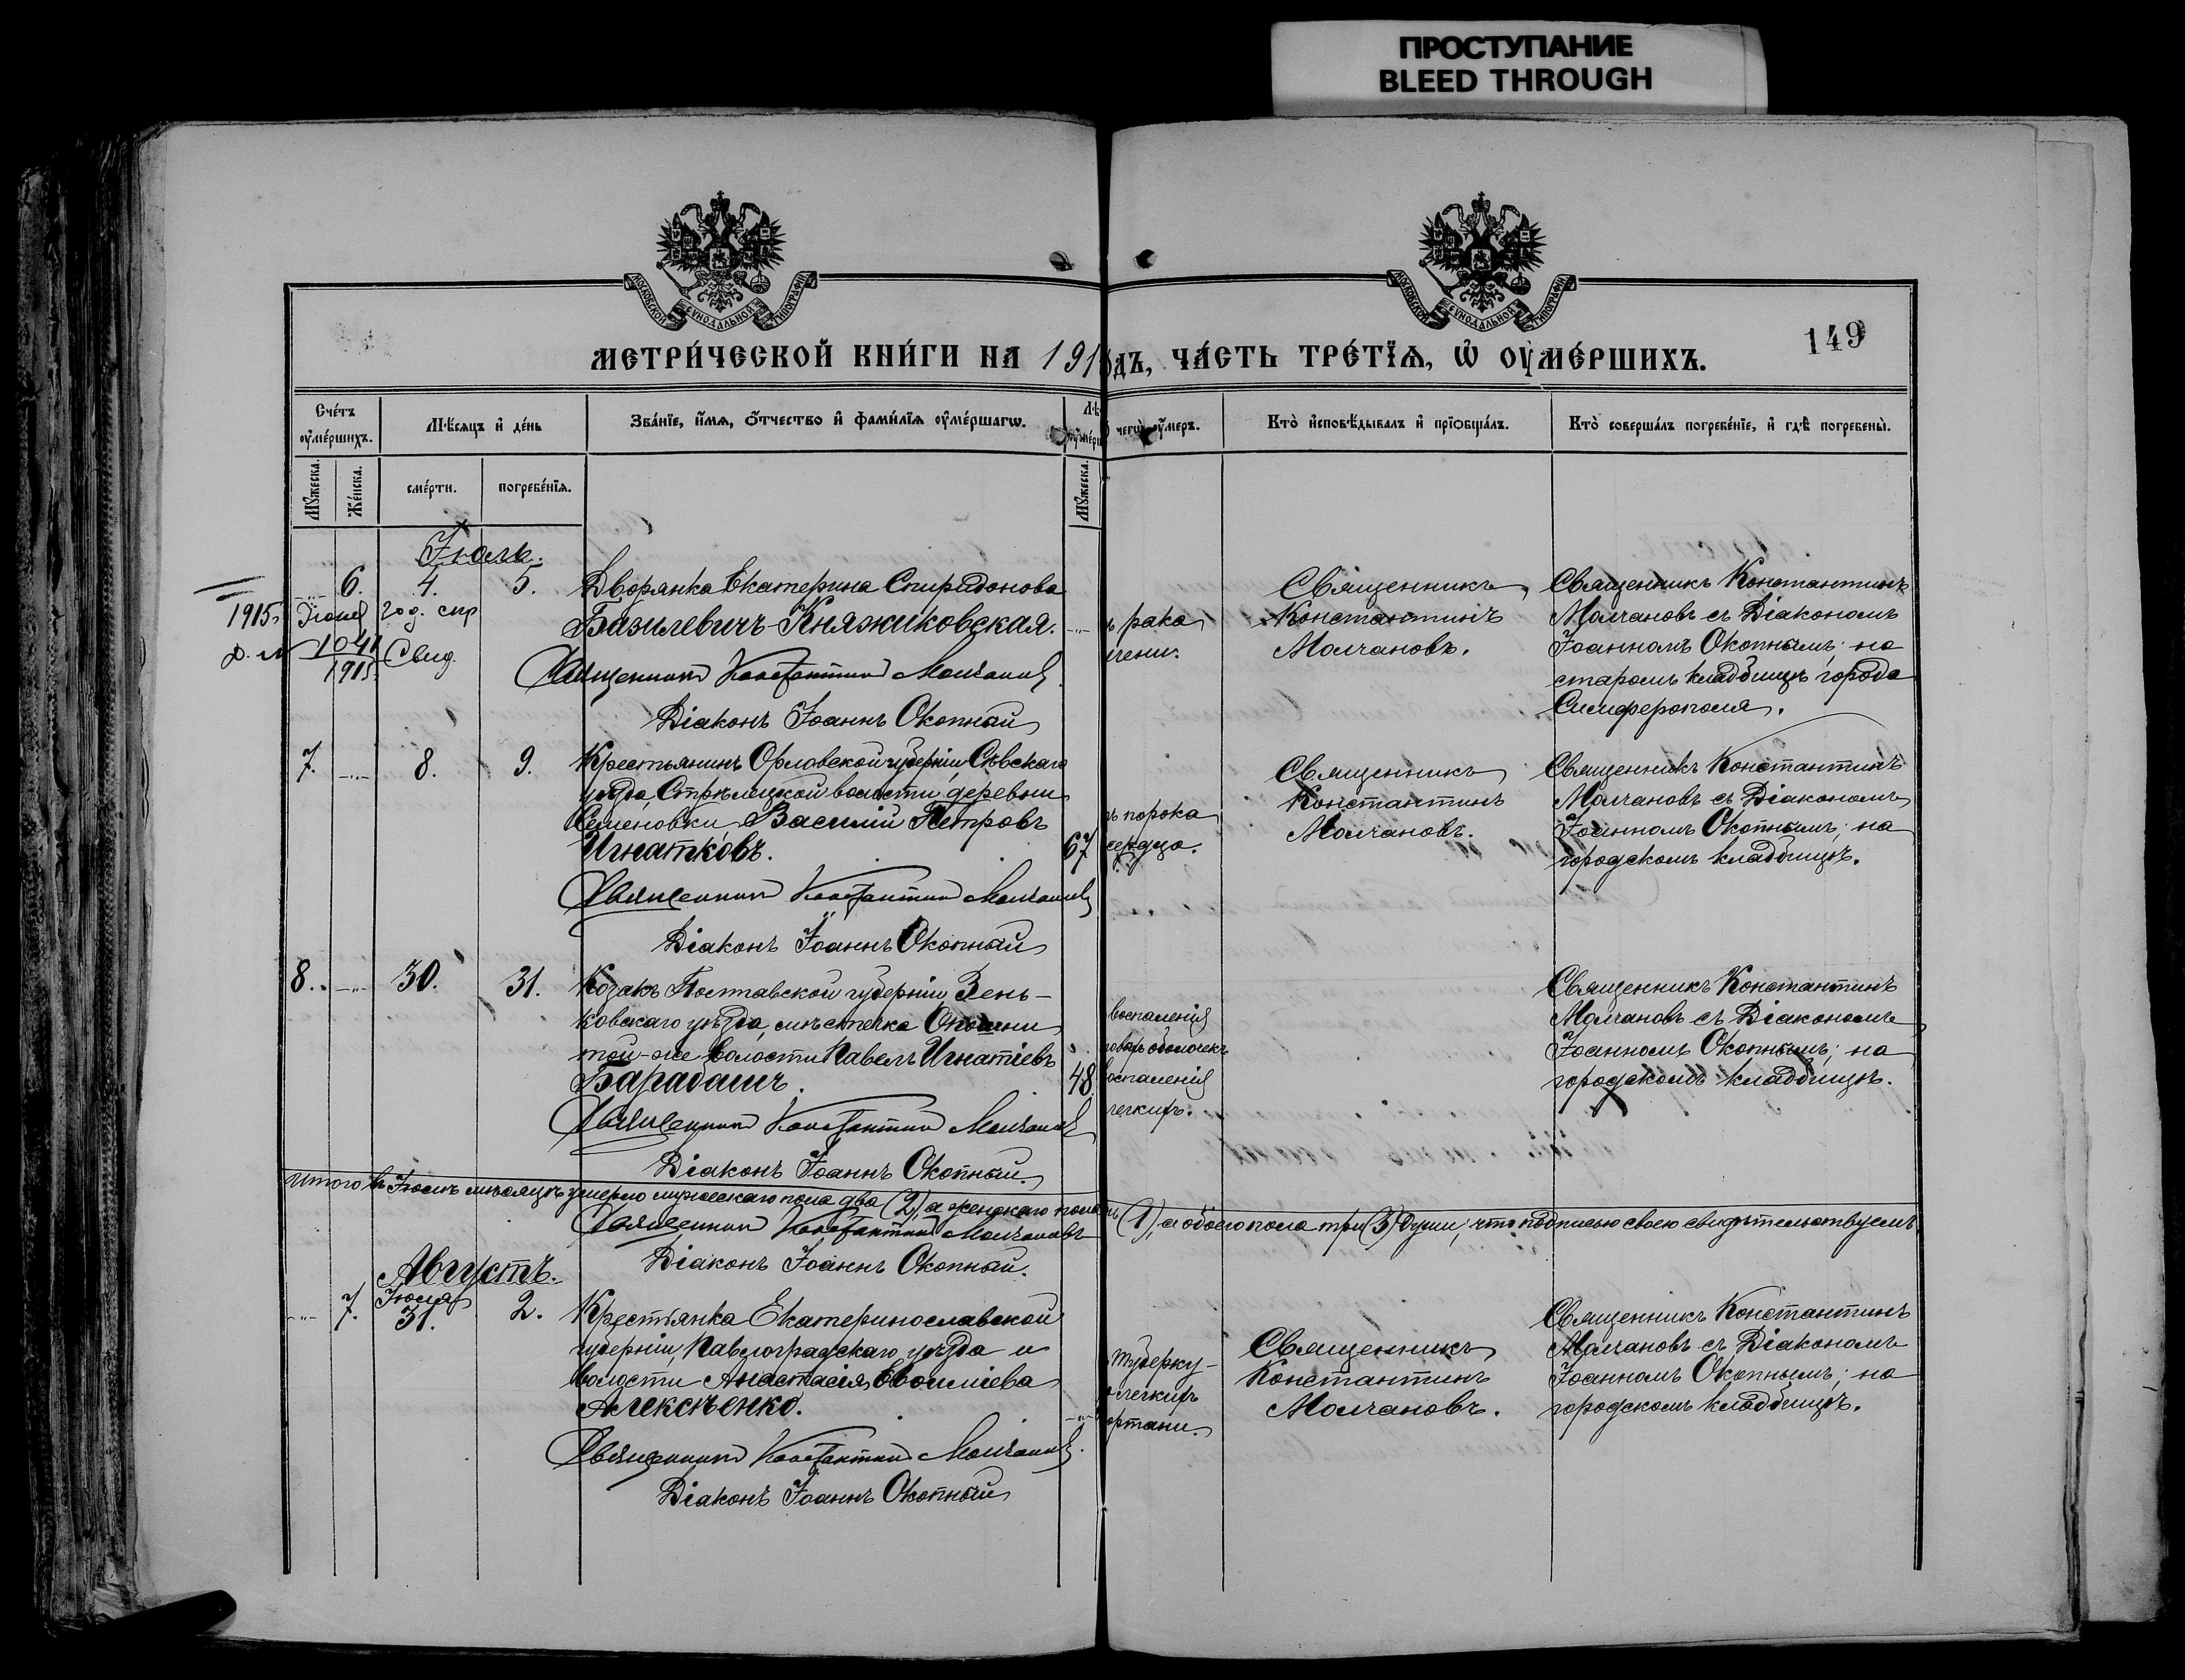 ПРОСТУПАНИЕ
BLEED THROUGH
МОСКОВСКОЙ СѴНОДАЛЬНОЙ ТИПОГРАФІИ
МОСКОВСКОЙ СѴНОДАЛЬНОЙ ТИПОГРАФІИ
149
МЕТРИ́ЧЕСКОЙ КНИ́ГИ НА 191
ОДЪ, ЧА́СТЬ ТРЕ́ТЇѦ, Ѽ ОУМЕ́РШИХЪ.
Сче́тъ
оуме́ршихъ.
Мѣ́сяцъ и де́нь
Зва́нїе, и́мя, о́тчество и фами́лїя оуме́ршагѡ.
Лѣ
оуме́рш
чегѡ̀ оу́меръ.
Кто̀ исповѣ́дывалъ и прїѡбща́лъ.
Кто̀ соверша́лъ погребе́нїе, и гдѣ̀ погребены̀.
Му́жеска.
Же́нска.
сме́рти.
погребе́нїя.
Му́жеска.
Іюль.
6. 4. 5. Дворянка Екатерина Спиридонова
Базилевичъ-Княжиковская.
1915
1041
1915
Свид.
Священникъ Константинъ Молчановъ
Діаконъ Іоаннъ Окопный
рака
Священникъ
Константинъ
Молчановъ.
Священникъ Константинъ
Молчановъ съ Діакономъ
Іоанномъ Окопнымъ; на
старомъ кладбищѣ города
Симферополя.
7. 8. 9. Крестьянинъ Орловской губерніи Сѣвскаго
уѣзда, Стрѣлецкой волости, деревни
Семеновки Василій Петровъ
Игнатковъ.
67
Священникъ Константинъ Молчановъ
Діаконъ Іоаннъ Окопный
порока
сердца.
Священникъ
Константинъ
Молчановъ.
Священникъ Константинъ
Молчановъ съ Діакономъ
Іоанномъ Окопнымъ; на
городскомъ кладбищѣ.
8. 30. 31. Козакъ Полтавской губерніи, Зень-
ковскаго уѣзда, мѣстечка Опошни
той-же волости Павелъ Игнатіевъ
Барабашъ.
48
Священникъ Константинъ Молчановъ
Діаконъ Іоаннъ Окопный.
воспаленія
оболочекъ
воспаленія
легкихъ.
Священникъ Константинъ
Молчановъ съ Діакономъ
Іоанномъ Окопнымъ; на
городскомъ кладбищѣ.
Итого въ Іюлѣ мѣсяцѣ умерло мужескаго пола два (2), а женскаго пола
(1), а обоего пола три (3) души; что подписью своею свидѣтельствуемъ
Священникъ Константинъ Молчановъ
Діаконъ Іоаннъ Окопный.
Августъ.
Іюля
7. 31. 2. Крестьянка Екатеринославской
губерніи, Павлоградскаго уѣзда и
волости, Анастасія Евфиміева
Алексѣенко.
Священникъ Константинъ Молчановъ.
Діаконъ Іоаннъ Окопный
туберку-
легкихъ
Священникъ
Константинъ
Молчановъ.
Священникъ Константинъ
Молчановъ съ Діакономъ
Іоанномъ Окопнымъ; на
городскомъ кладбищѣ.